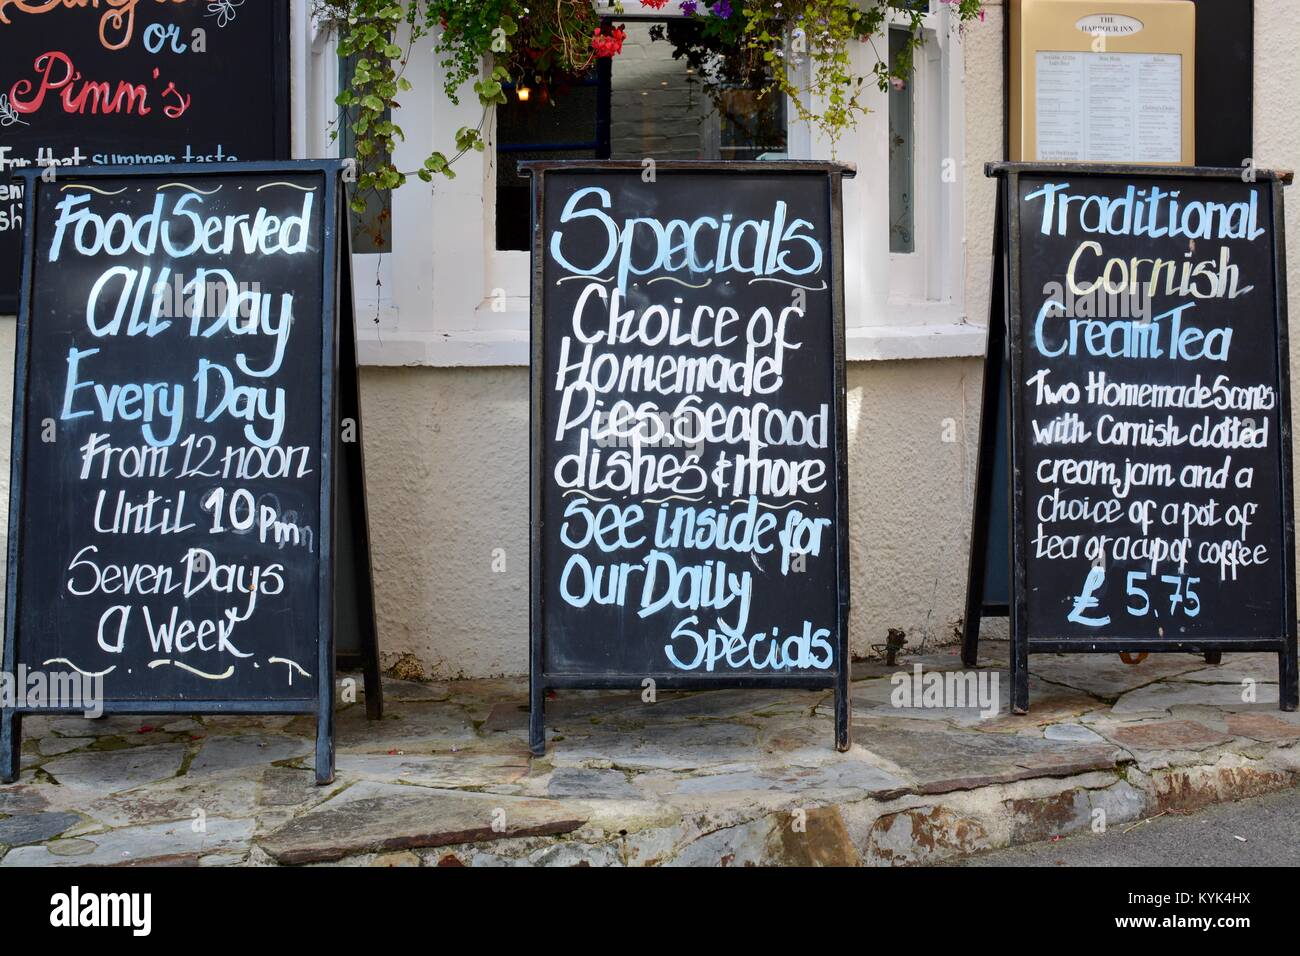 or
Pimm's
For that summer taste
Food Served
All Day
Every Day
From 12 noon
Until 10pm
Seven Days
A Week
Specials
Choice of
Homemade
Pies, Seafood
dishes & more
See inside for
Our Daily
Specials
THE
HARBOUR INN
Traditional
Cornish
Cream Tea
Two Homemade Scones
with Cornish clotted
cream, jam and a
choice of a pot of
tea or a cup of coffee
£ 5.75
alamy
Image ID: KYK4HX
www.alamy.com